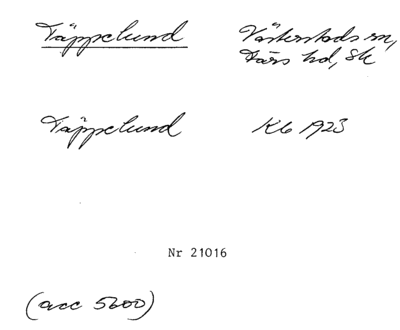 Täppelund Västerstads sn,
Färs hd, Sk
Täppelund Kb 1923
Nr 21016
(acc 5600)